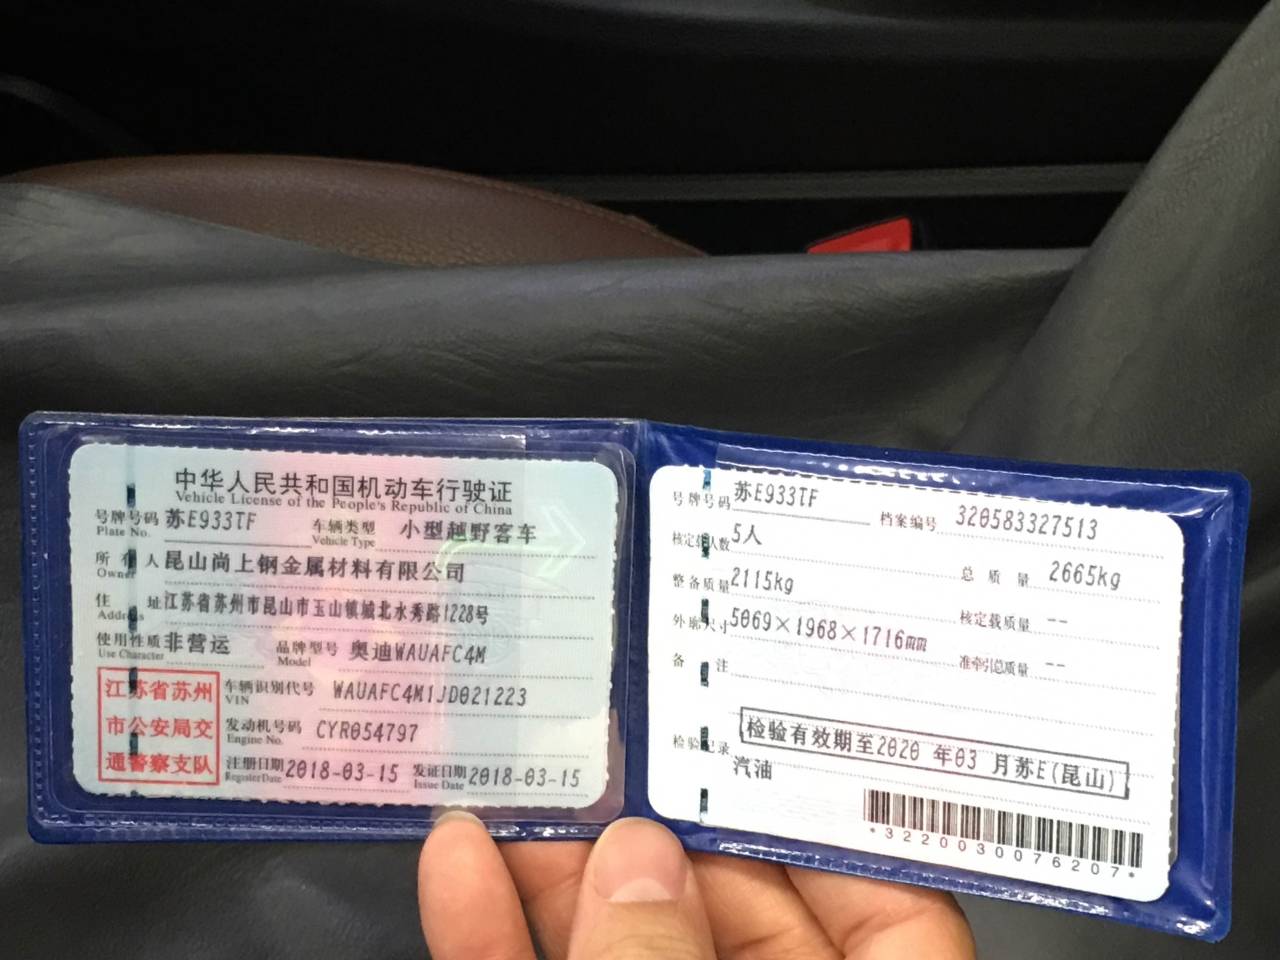 中华人民共和国机动车行驶证
Vehicle License of the People's Republic of China
号牌号码 苏E933TF 车辆类型 小型越野客车
Plate No. Vehicle Type
所有人 昆山尚上钢金属材料有限公司
Owner
住址 江苏省苏州市昆山市玉山镇城北水秀路1228号
Address
使用性质 非营运 品牌型号 奥迪WAUAFC4M
Use Character Model
江苏省苏州
市公安局交
通警察支队
车辆识别代号 WAUAFC4M1JD021223
VIN
发动机号码 CYR054797
Engine No.
注册日期 2018-03-15 发证日期 2018-03-15
Register Date Issue Date
号牌号码 苏E933TF 档案编号 320583327513
核定载人数 5人
总质量 2665kg
整备质量 2115kg
核定载质量 --
外廓尺寸 5069×1968×1716mm
准牵引总质量 --
备注
检验记录 检验有效期至2020 年03 月苏E(昆山)
汽油
*3220030076207*